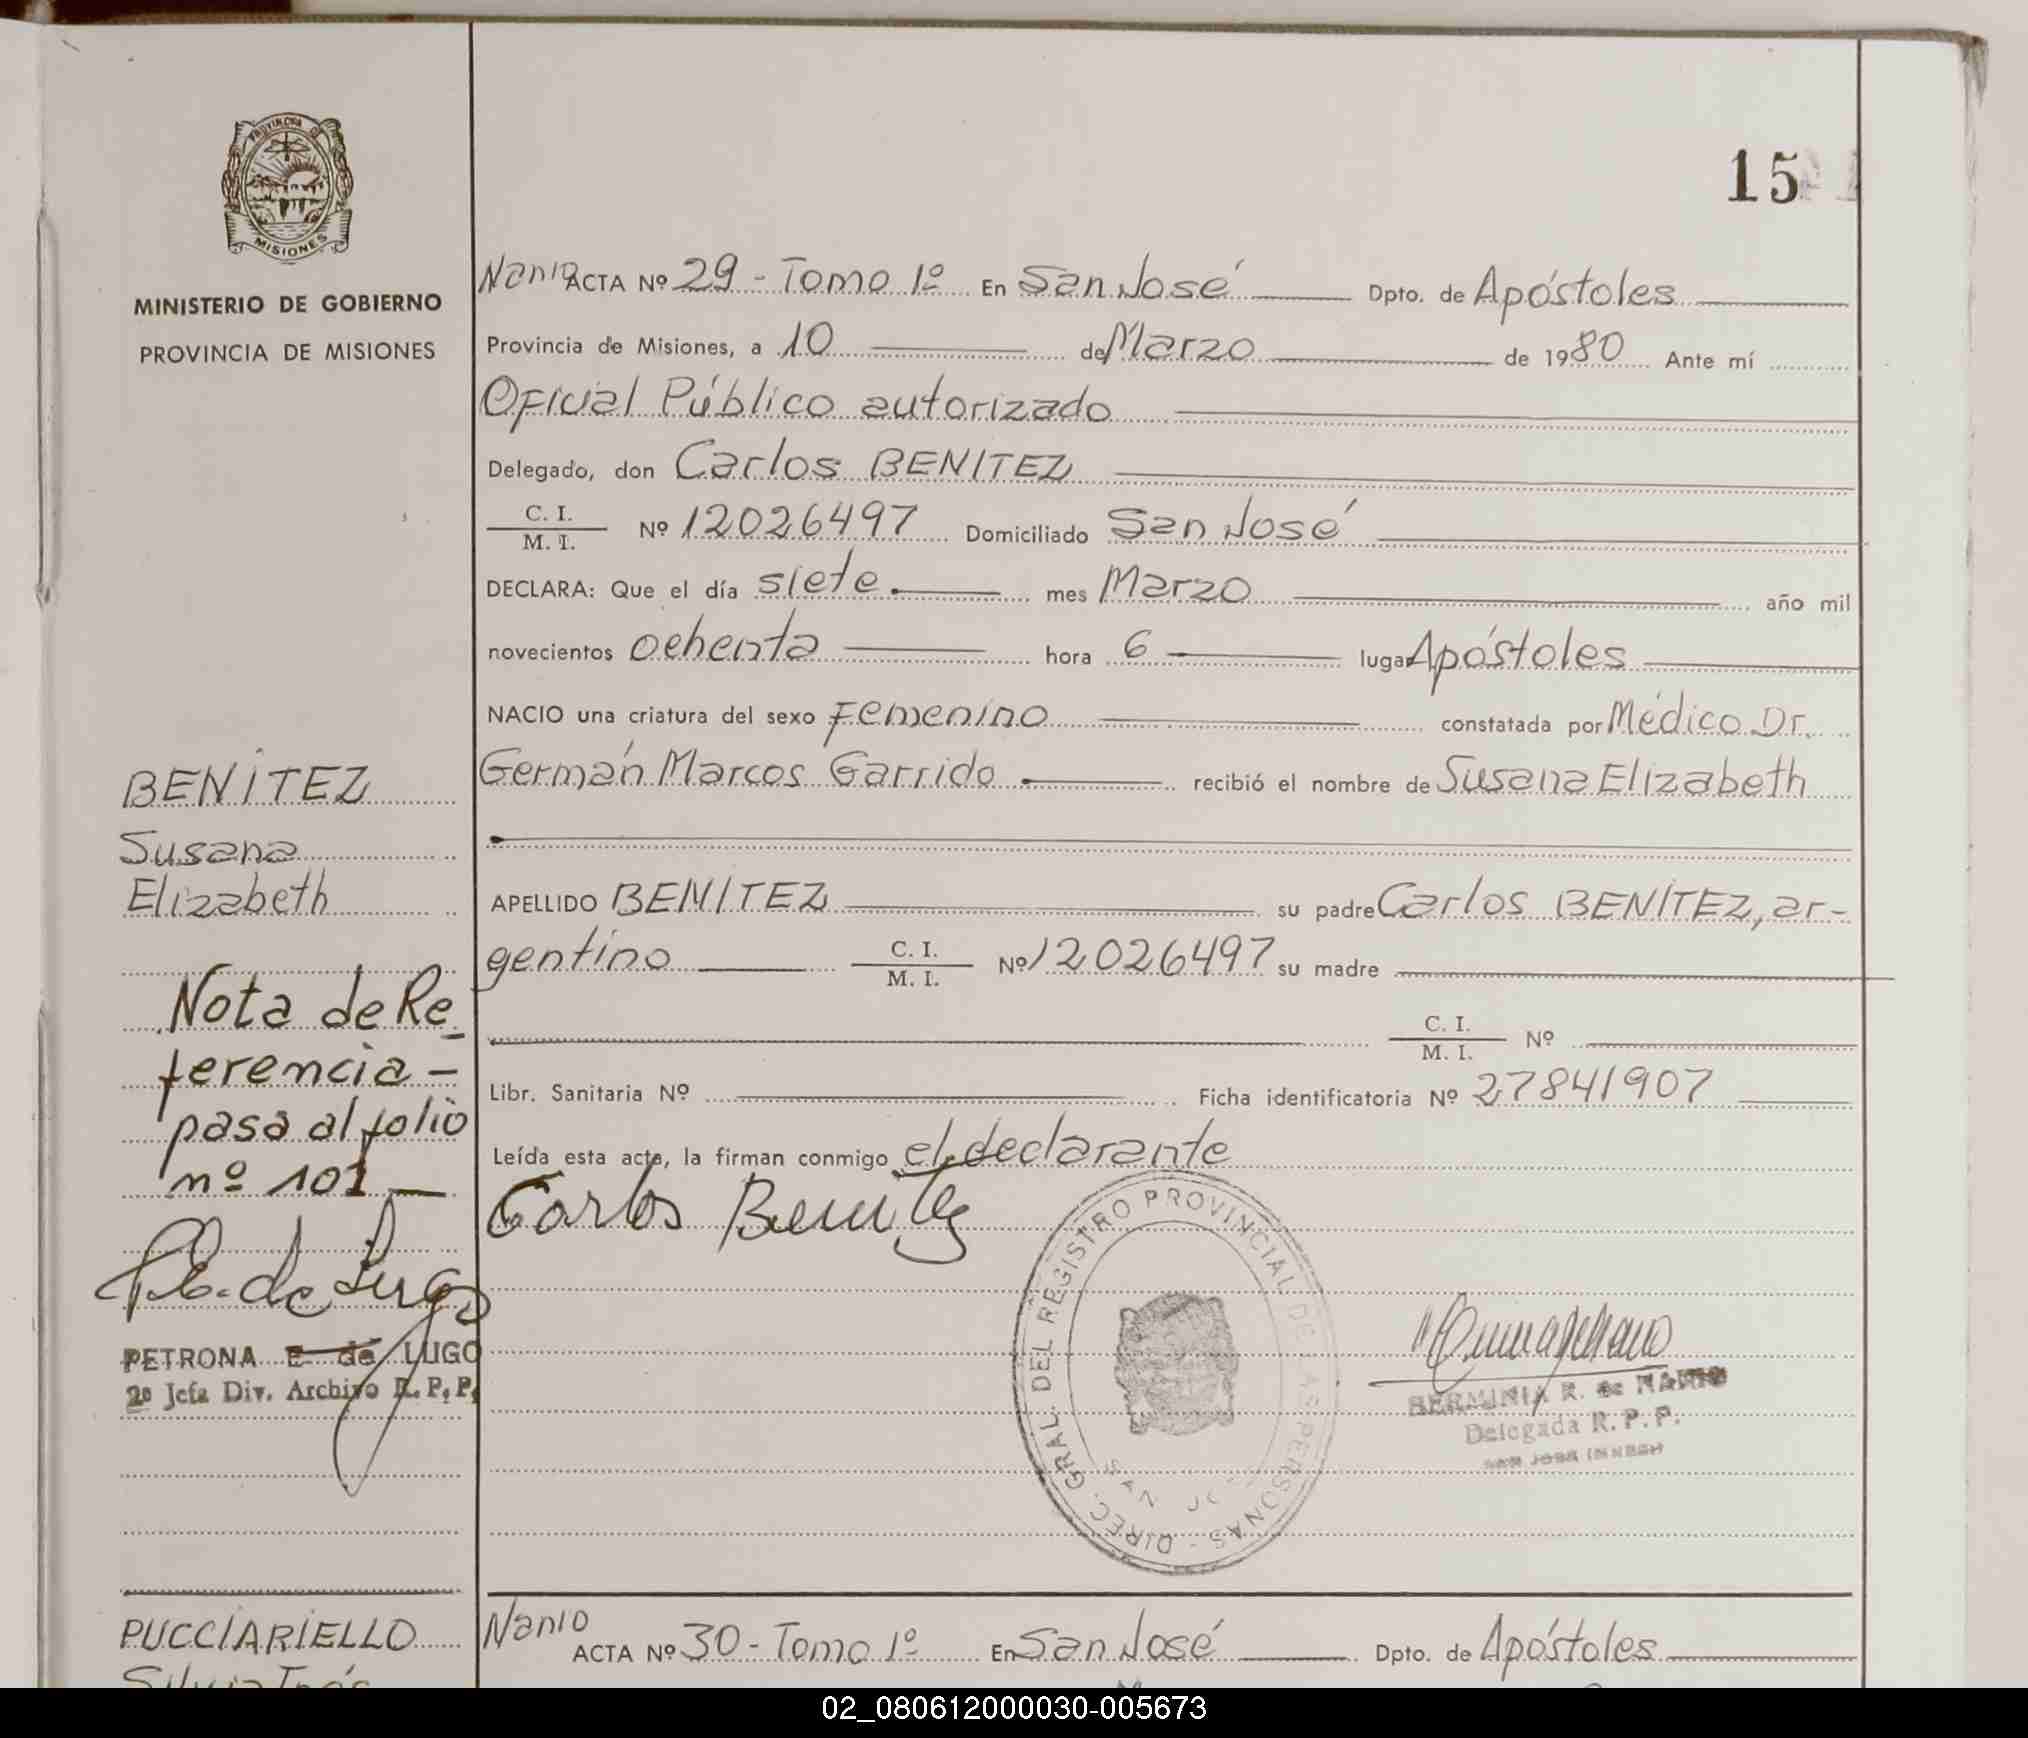 PROVINCIA DE
MISIONES
MINISTERIO DE GOBIERNO
PROVINCIA DE MISIONES
15
ACTA Nº 29 - Tomo 1º En San José Dpto. de Apóstoles
Provincia de Misiones, a 10 de Marzo de 1980 Ante mí
Oficial Público autorizado
Delegado, don Carlos BENITEZ
C. I.
M. I. Nº 12026497 Domiciliado San José
DECLARA: Que el día siete mes Marzo año mil
novecientos ochenta hora 6 lugar Apóstoles
NACIO una criatura del sexo Femenino constatada por Médico Dr.
Germán Marcos Garrido recibió el nombre de Susana Elizabeth
APELLIDO BENITEZ su padre Carlos BENÍTEZ, ar-
gentino C. I. M. I. Nº 12026497 su madre
C. I. M. I. Nº
Libr. Sanitaria Nº Ficha identificatoria Nº 27841907
Leída esta acta, la firman conmigo el declarante
Carlos Benitez
DIREC. GRAL. DEL REGISTRO PROVINCIAL DE LAS PERSONAS
HERMINIA R. de
Delegada R. P. P.
BENÍTEZ
Susana
Elizabeth
Nota de Re_
ferencia -
pasa al folio
nº 101 —
de Lugo
PETRONA E. de LUGO
2º Jefa Div. Archivo R. P. P.
PUCCIARIELLO
Silvia Inés
ACTA Nº 30 - Tomo 1º En San José Dpto. de Apóstoles
02_080612000030-005673